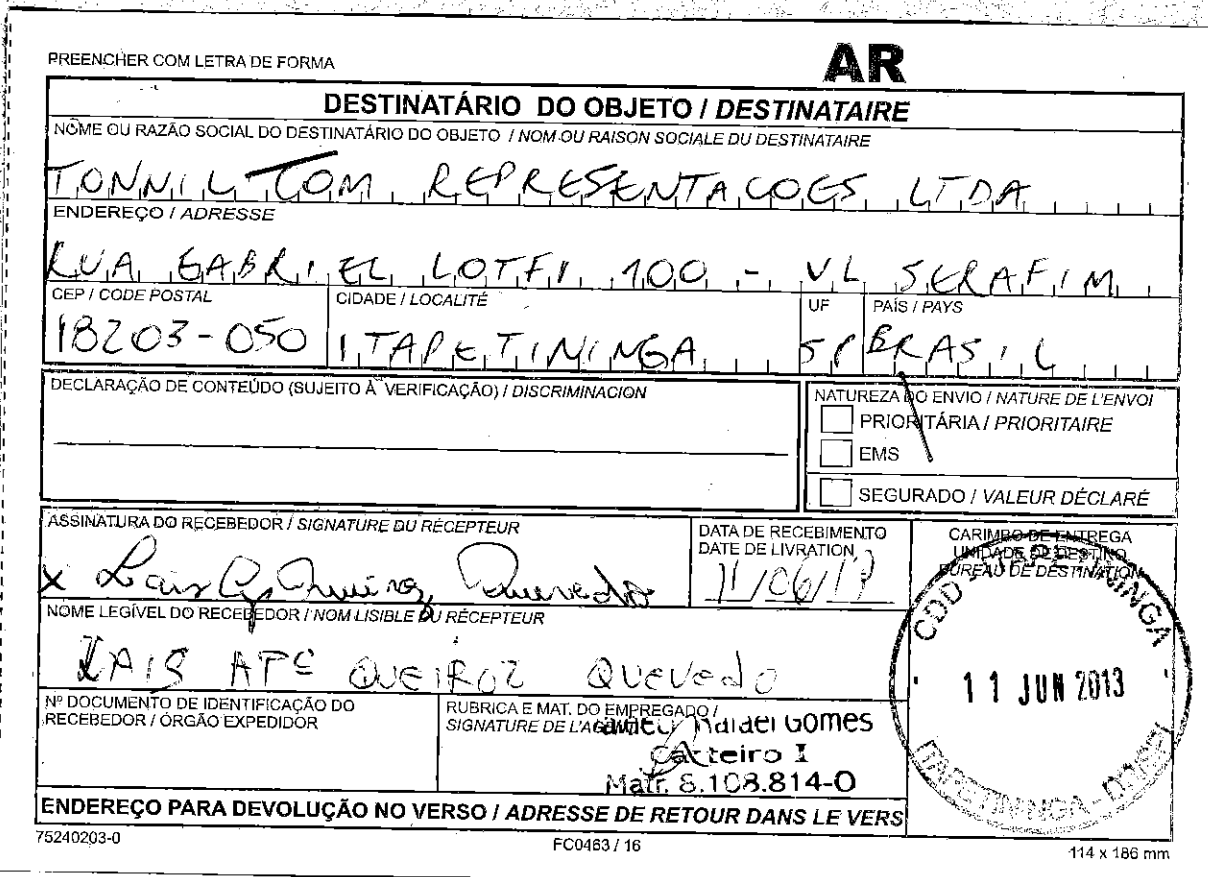 PREENCHER COM LETRA DE FORMA
AR
DESTINATÁRIO DO OBJETO / DESTINATAIRE
NOME OU RAZÃO SOCIAL DO DESTINATÁRIO DO OBJETO / NOM OU RAISON SOCIALE DU DESTINATAIRE
TONNIL COM REPRESENTACOES LTDA
ENDEREÇO / ADRESSE
RUA GABRIEL LOTFI 100 - VL SERAFIM
CEP / CODE POSTAL CIDADE / LOCALITÉ UF PAÍS / PAYS
18203-050 ITAPETININGA SP BRASIL
DECLARAÇÃO DE CONTEÚDO (SUJEITO À VERIFICAÇÃO) / DISCRIMINACION
NATUREZA DO ENVIO / NATURE DE L'ENVOI
PRIORITÁRIA / PRIORITAIRE
EMS
SEGURADO / VALEUR DÉCLARÉ
ASSINATURA DO RECEBEDOR / SIGNATURE DU RÉCEPTEUR
x Lais Queiroz Quevedo
DATA DE RECEBIMENTO
DATE DE LIVRATION
11/06/13
CARIMBO DE ENTREGA
UNIDADE DE DESTINO
BUREAU DE DESTINATION
CDD - ITAPETININGA
11 JUN 2013
ITAPETININGA -
NOME LEGÍVEL DO RECEBEDOR / NOM LISIBLE DU RÉCEPTEUR
LAIS APE QUEIROZ QUEVEDO
Nº DOCUMENTO DE IDENTIFICAÇÃO DO
RECEBEDOR / ÓRGÃO EXPEDIDOR
RUBRICA E MAT. DO EMPREGADO /
SIGNATURE DE L'AGENT
Rafael Gomes
Carteiro I
Matr. 8.108.814-0
ENDEREÇO PARA DEVOLUÇÃO NO VERSO / ADRESSE DE RETOUR DANS LE VERS
75240203-0
FC0463 / 16
114 x 186 mm